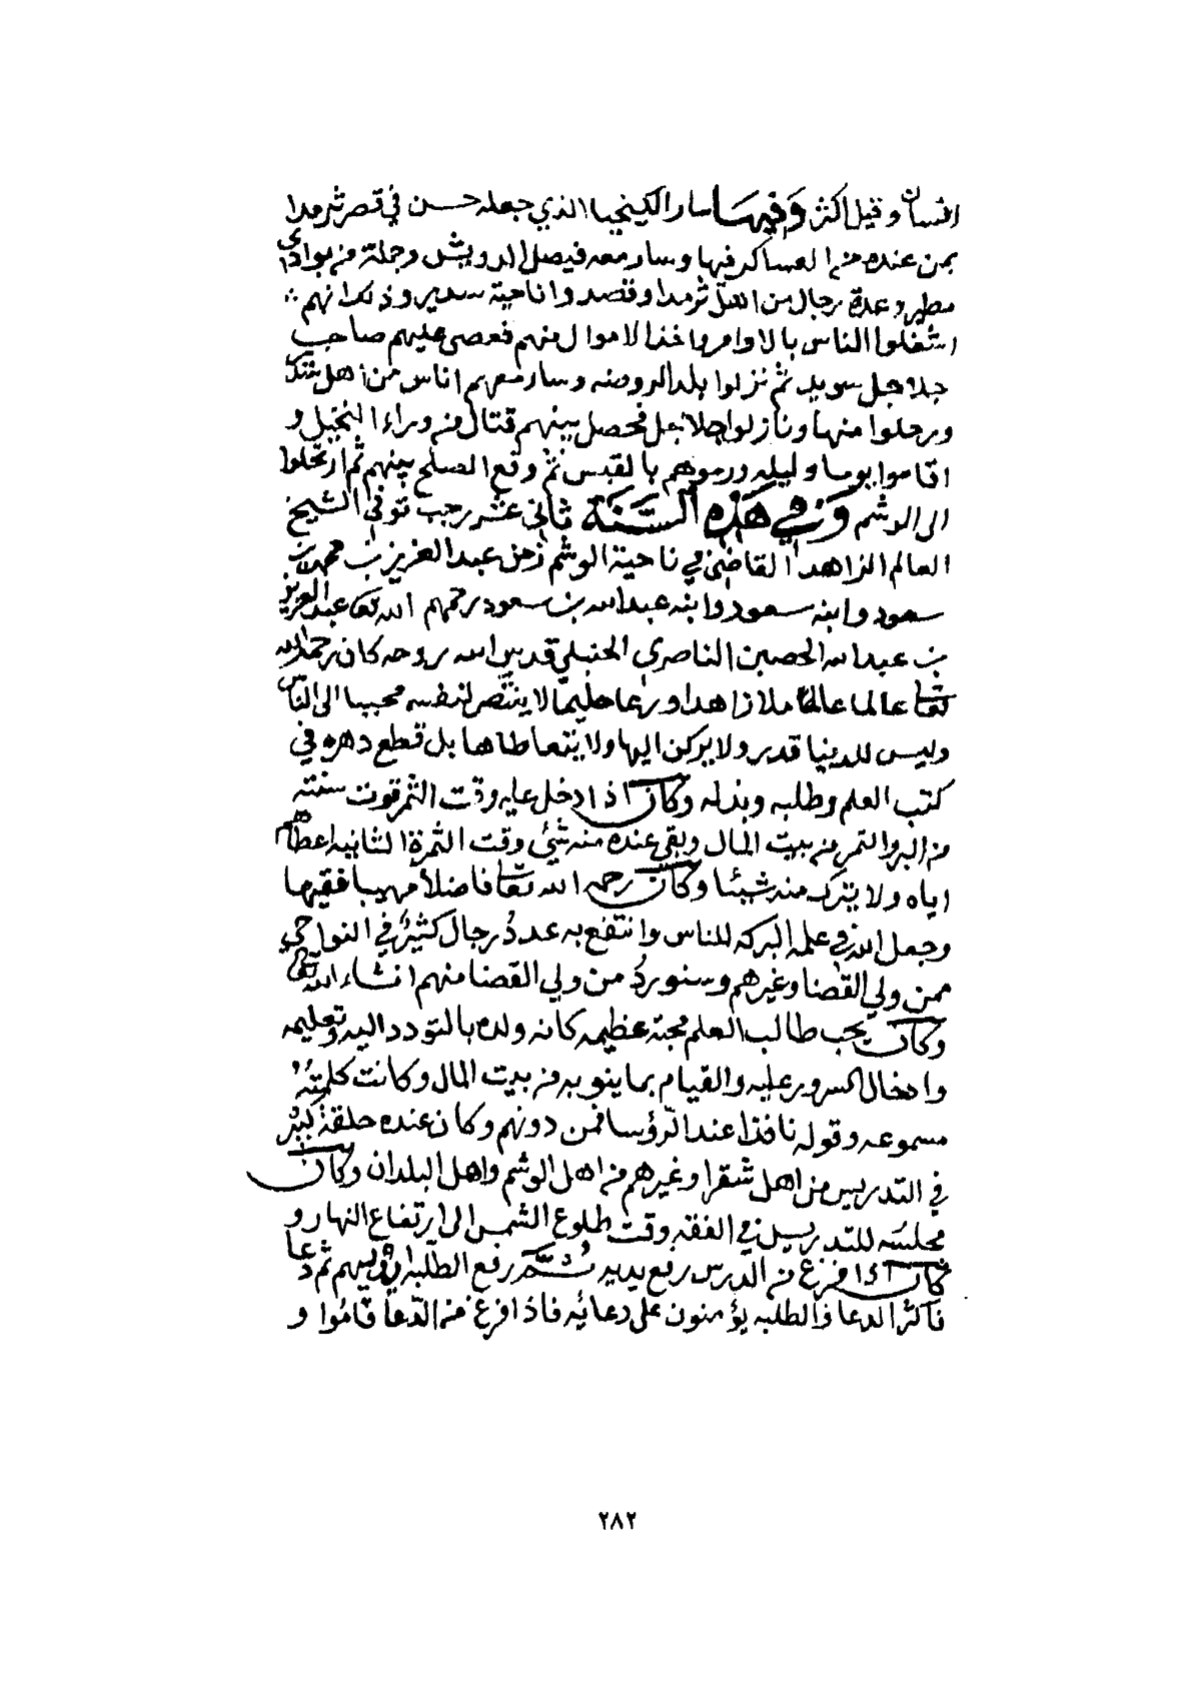 انسان وقيل اكثر وَفيهَا سار الكينجيا الذي جعله حسن في قصر ثرمدا
بمن عنده من العساكر فيها وسار معه فيصل الدويش وجملة من بوادي
مطير وعدة رجال من اهل ثرمدا وقصدوا ناحية سدير وذلك انهم
اشغلوا الناس بالاوامر واخذ الاموال منهم فعصى عليهم صاحب
جلاجل سويد ثم نزلوا بلد الروضه وسار معهم اناس من اهل
ورحلوا منها ونازلوا جلاجل فحصل بينهم قتال من وراء النخيل و
اقاموا يوما وليله ورموهم بالقبس ثم وقع الصلح بينهم ثم ارتحلوا
الى الوشم وَفي هَذِه السَّنَة ثاني عشر رجب توفى الشيخ
العالم الزاهد القاضي في ناحية الوشم زمن عبد العزيز بن محمد بن
سعود وابنه سعود وابنه عبد الله بن سعود رحمهم الله تعا عبد العزيز
بن عبد الله الحصين الناصري الحنبلي قدس الله روحه كان رحمه الله
تعا عالما عاملا زاهدا ورعا حليما لا ينتصر لنفسه محببا الى الناس
وليس للدنيا قدر ولا يركن اليها ولا يتعاطاها بل قطع دهره في
كتب العلم وطلبه وبذله وكان اذا دخل عليه وقت الثمر قوت سنته
من البر والتمر من بيت المال وبقي عنده منه شئي وقت الثمرة الثانيه اعطاهم
اياه ولا يترك منه شيئا وكان رحمه الله تعا فاضلا مهيبا فقيها
وجعل الله في علمه البركه للناس وانتفع به عددُ رجال كثيرٌ في النواحي
ممن ولي القضا وغيرهم وسنوردُ من ولي القضا منهم انشاء الله تعا
وكان يحب طالب العلم محبة عظيمه كانه ولده بالتودد اليه وتعليمه
وادخال السرور عليه والقيام بما ينوبه من بيت المال وكانت كلمته
مسموعه وقوله نافذا عند الرّؤسا فمن دونهم وكان عنده حلقة كبير
في التدريس من اهل شقرا وغيرهم من اهل الوشم واهل البلدان وكان
مجلسُه للتدريس في الفقه وقت طلوع الشمس الى ارتفاع النهار و
كان اذا فرغ من الدرس رفع يديه ثُمَّ رفع الطلبه ايديهم ثم دعا
فاكثر الدعا والطلبه يؤمنون على دعائه فاذا فرغ من الدّعا قامُوا و
٢٨٢